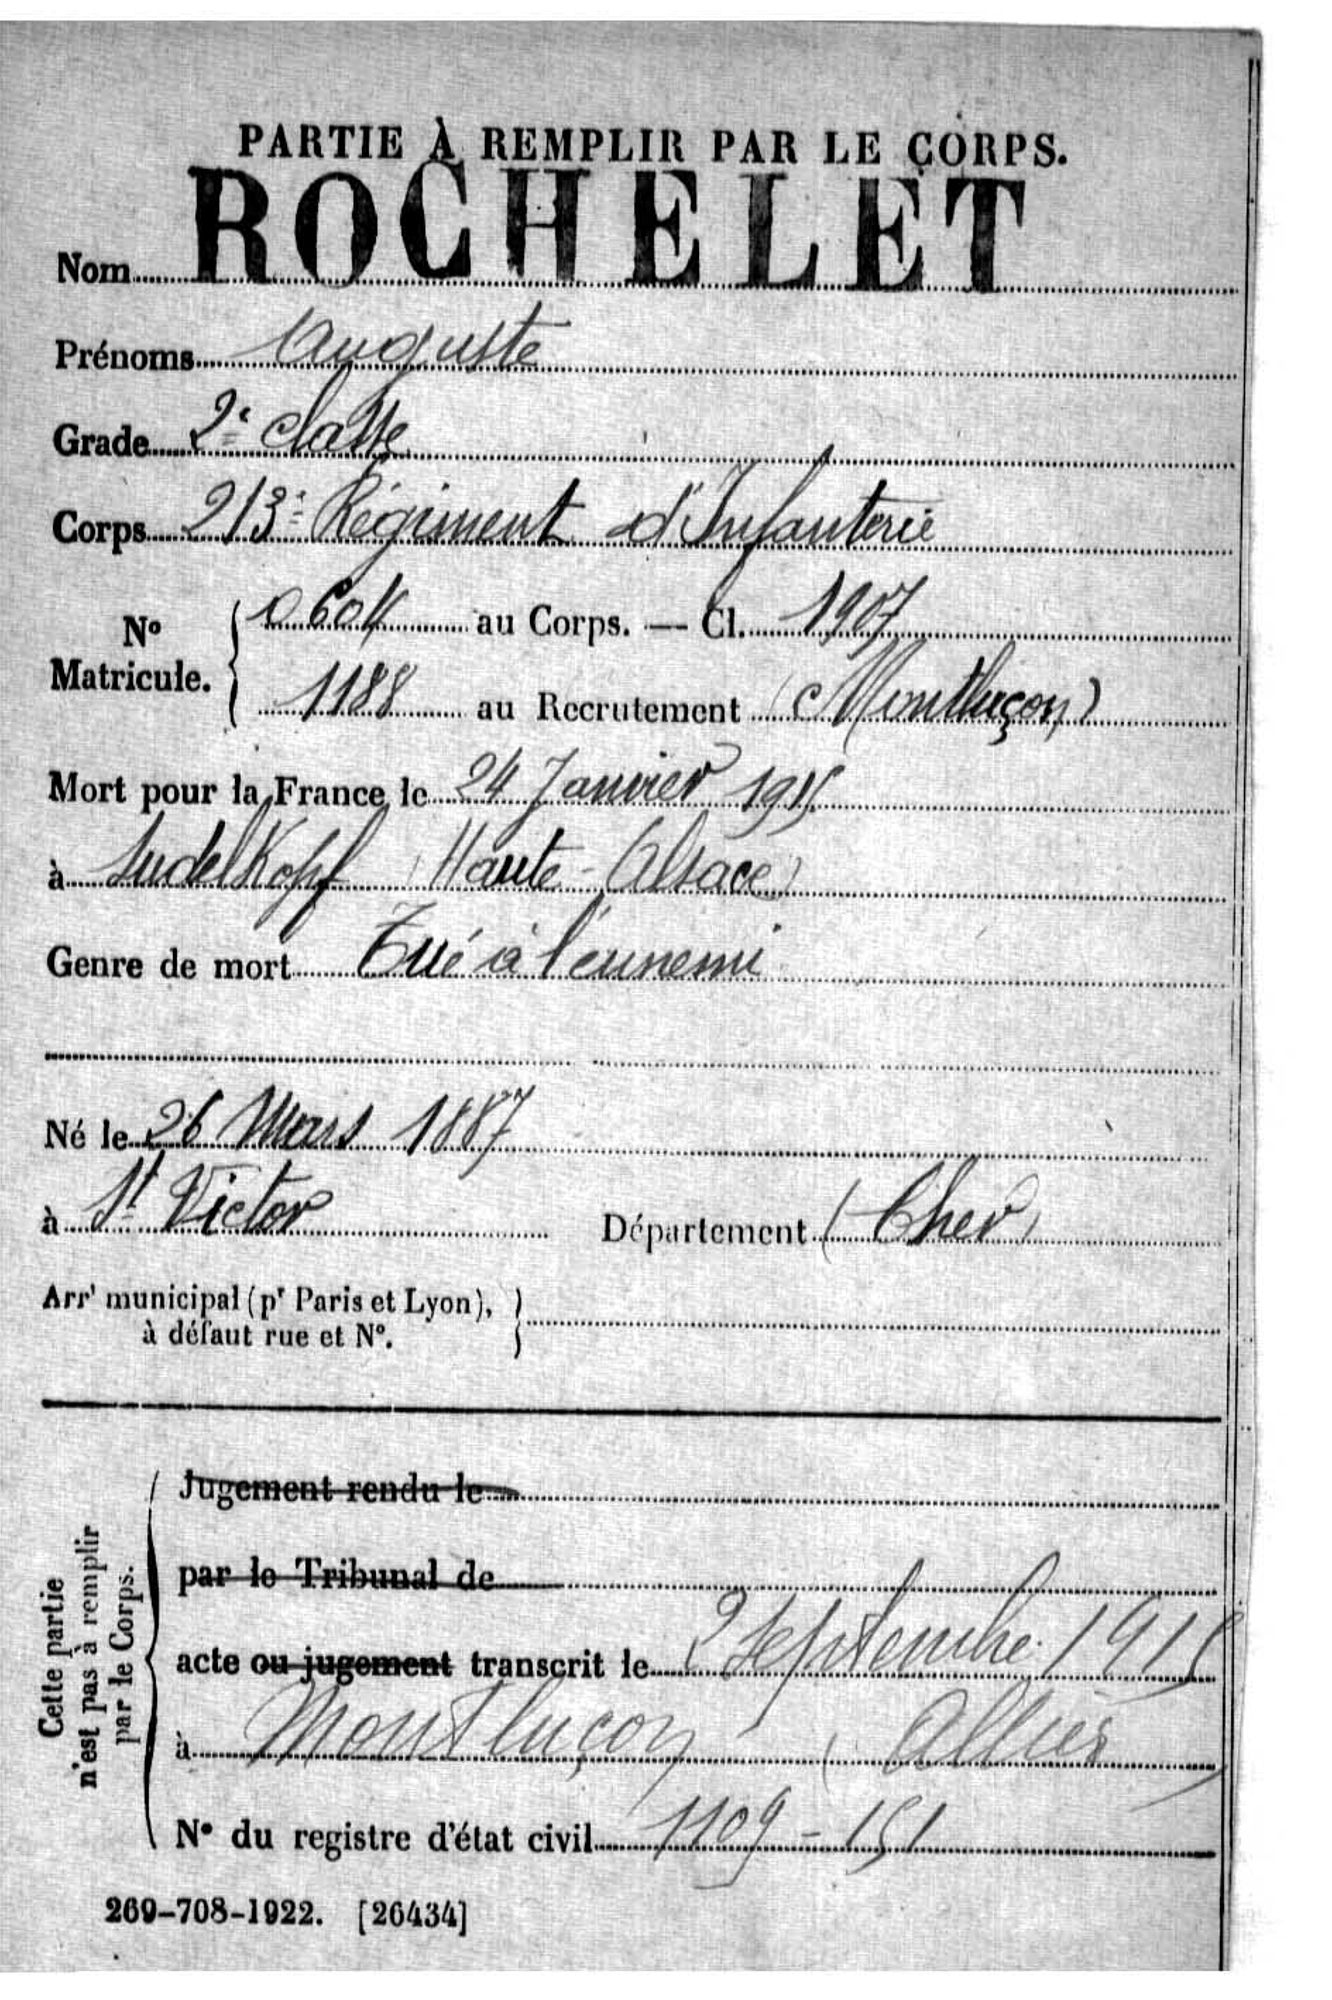 PARTIE À REMPLIR PAR LE CORPS.
Nom ROCHELET
Prénoms Auguste
Grade 2e classe
Corps 213e Régiment d'Infanterie
No Matricule. { 0604 au Corps. — Cl. 1907
1188 au Recrutement (Montluçon)
Mort pour la France le 24 Janvier 1915
à Sudelkopf (Haute-Alsace)
Genre de mort Tué à l'ennemi
Né le 26 Mars 1887
à St Victor Département (Cher)
Arrt municipal (pr Paris et Lyon), }
à défaut rue et No.
Cette partie
n'est pas à remplir
par le Corps.
Jugement rendu le
par le Tribunal de
acte ou jugement transcrit le 2 Septembre 1915
à Montluçon (Allier)
No du registre d'état civil 1109 - 151
269-708-1922. [26434]